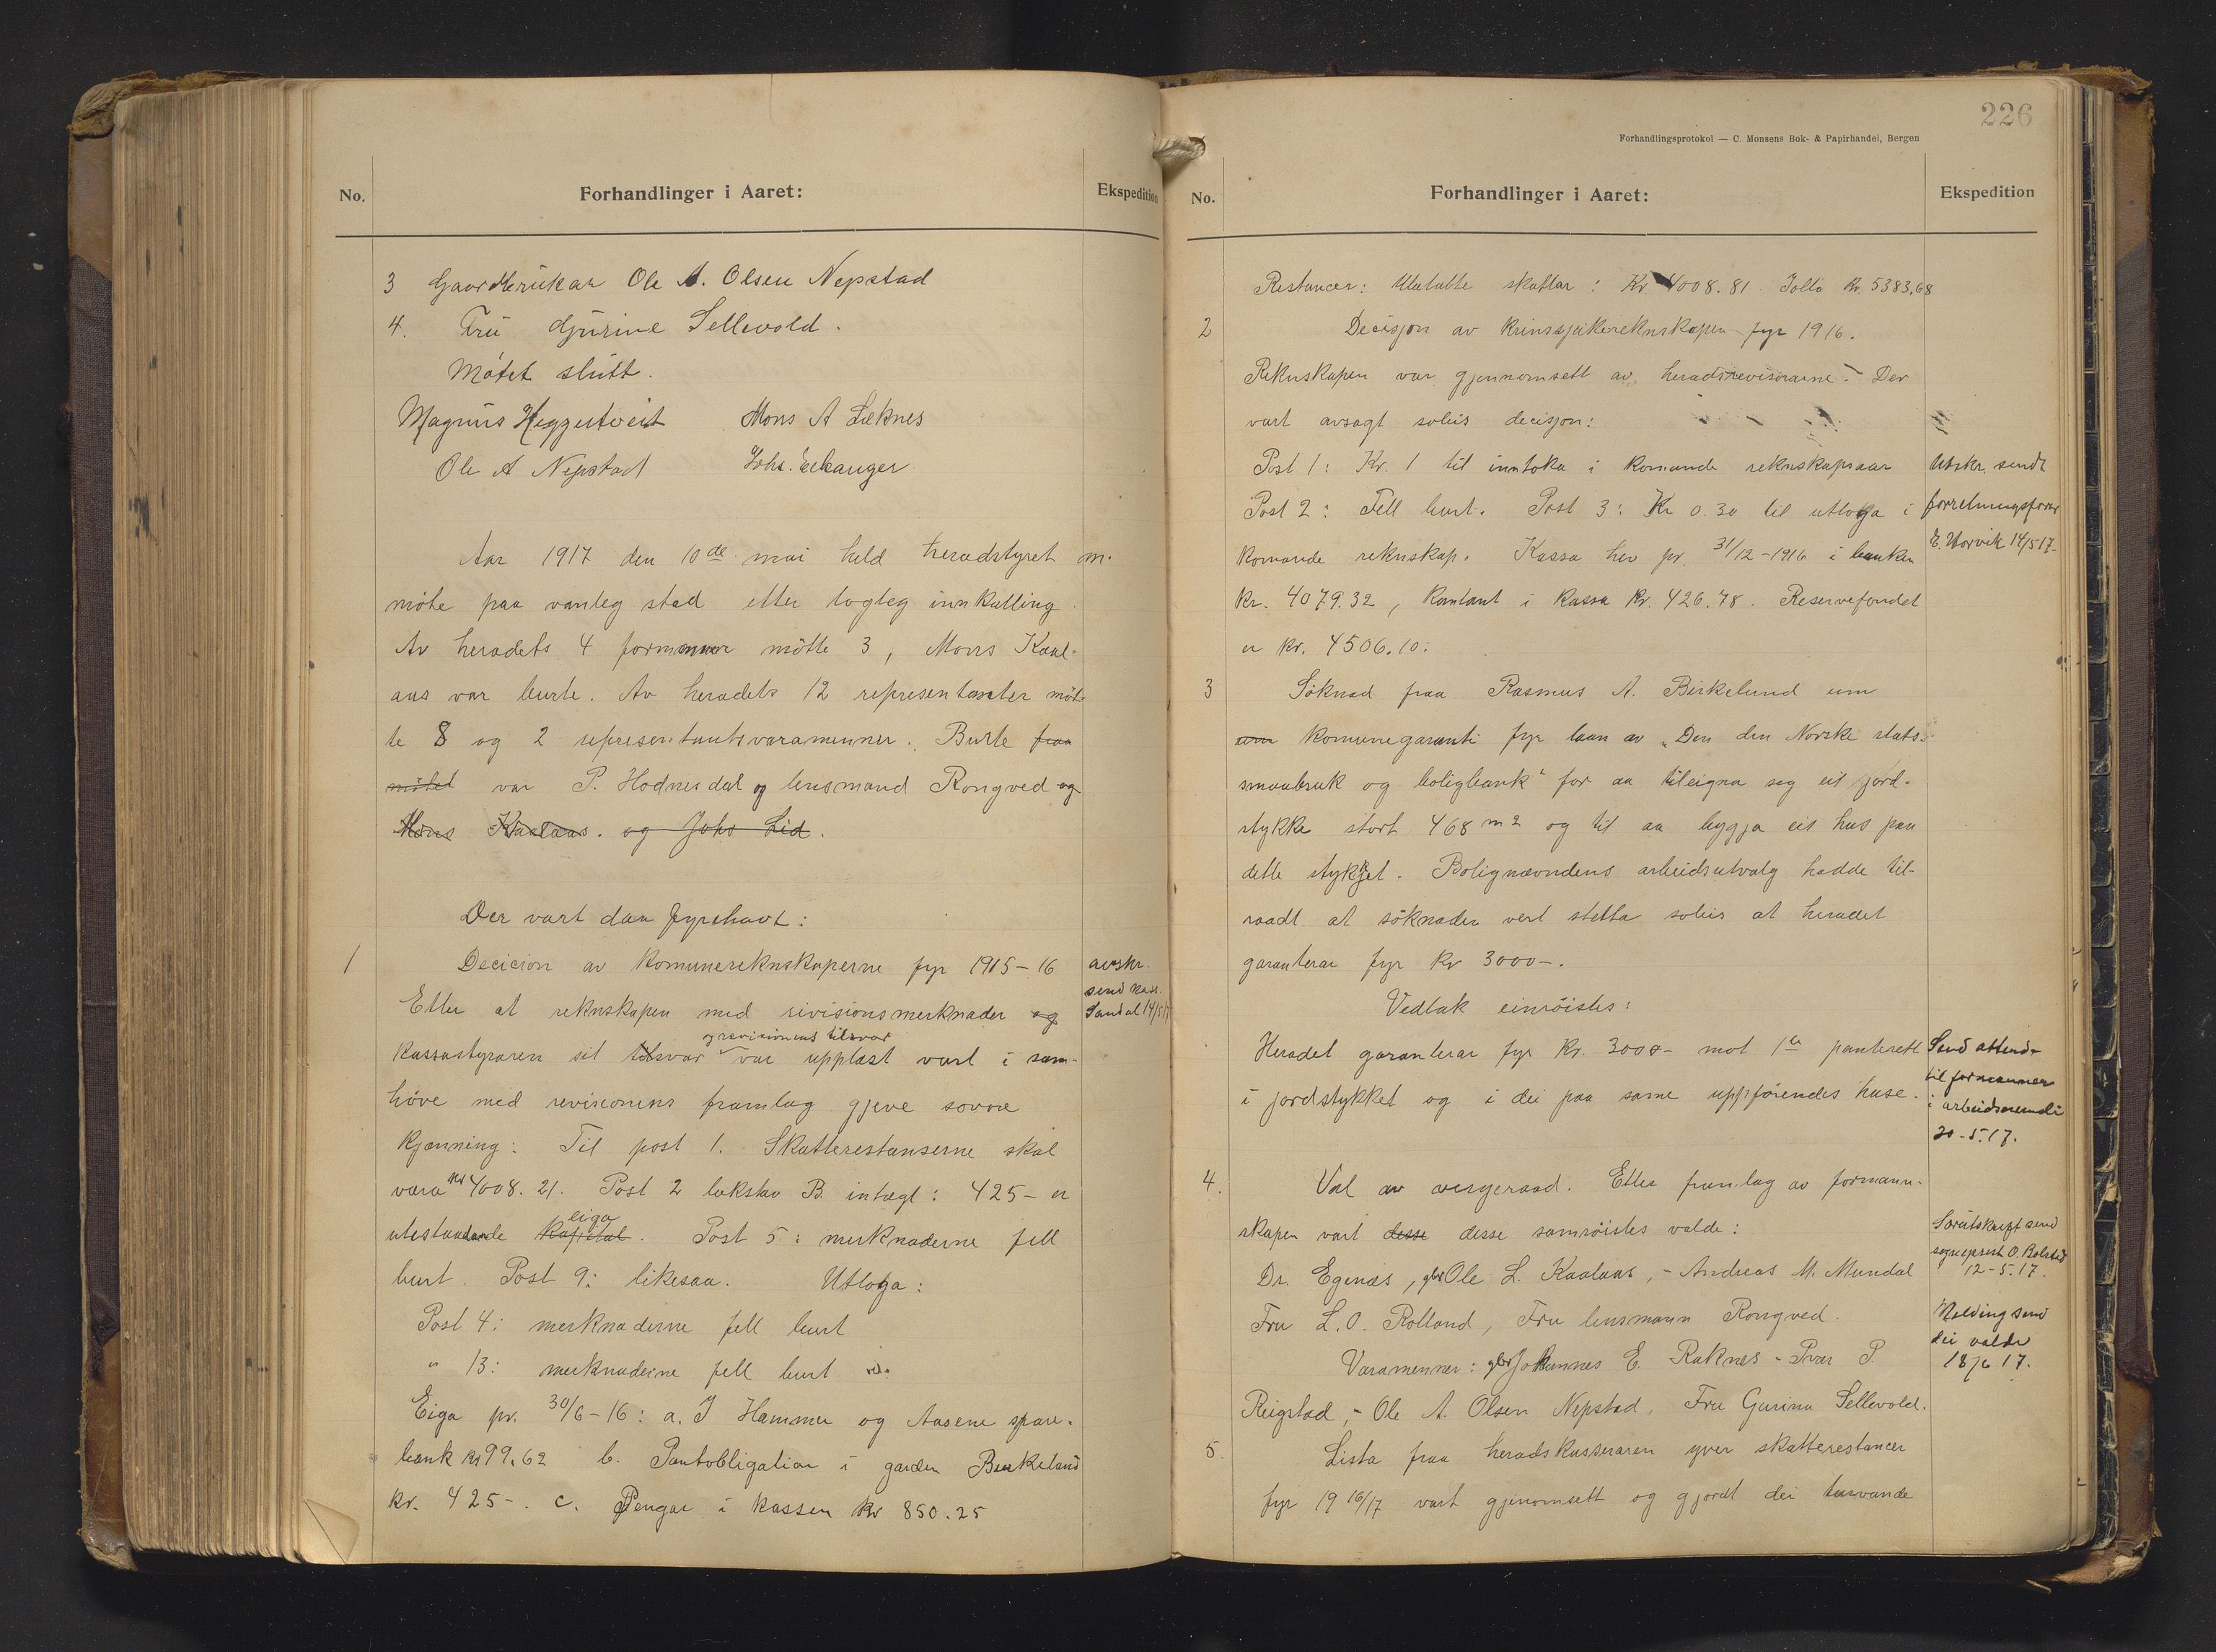 No.
Forhandlinger i Aaret:
Ekspedition
3 Gaardbrukar Ole A. Olsen Nepstad
4. Fru Gjurine Sellevold.
Mötet slutt.
Magnus Heggertveit Mons A Læknes
Ole A Nepstad Johs. Eikanger
Aar 1917 den 10de mai held heradstyret m.
möte paa vanleg stad etter logleg innkalling
Av heradets 4 formenner mötte 3, Mons Kaal-
aas var burte. Av heradets 12 representanter möt-
te 8 og 2 representantsvaramenner. Burte fraa
mötet var P. Hodnesdal og lensmand Rongved og
Mons Kaalaas. og Johs Lid.
Der vart daa fyrehavt:
1 Decicion av komunereknskaperne fyr 1915-16
avskr.
send kass.
Sandal 14/5 17
Etter at reknskapen med rivisionsmerknader og
og revisionens tilsvar
kassastyraren sit tilsvar var upplæst vart i sam-
höve med revisionens framlag gjeve sovore
kjenning: Til post 1. Skatterestanserne skal
vara kr 4008.21. Post 2 bokstav B. intægt: 425- er
eiga
utestaandande kapital. Post 5: merknaderne fell
burt. Post 9: likesaa. Utloga:
Post 4: merknaderne fell burt
" 13: merknaderne fell burt
Eiga pr. 30/6-16: a. I Hammer og Aasene spare-
bank kr 99.62 b. Pantobligation i garden Birkeland
kr. 425-. c. Pengar i kassen kr 850.25
226
Forhandlingsprotokol — C. Monsens Bok- & Papirhandel, Bergen
No.
Forhandlinger i Aaret:
Ekspedition
Restancer: Utelatte skattar: Kr. 4008.81 Kr. 5383.68
2 Decisjon av krinssjukereknskapen fyr 1916.
Reknskapen var gjennomsett av heradsrevisorarne. - Der
vart avsagt soleis decisjon:
Post 1: Kr. 1 til inntoka i komande reknskapsaar
Post 2: Fell burt. Post 3: Kr 0.30 til utloga i
komande reknskap. Kassa hev pr. 31/12-1916 i banken
Utskr. sendt
forretningsförar
E. Horvik 14/5 17.
kr. 4079.32, kontant i kassa kr. 426.78. Reservefondet
er kr. 4506.10.
3 Söknad fraa Rasmus A. Birkelund um
um komunegaranti fyr laan av "Den den Norske stats-
smaabruk og boligbank" for aa tileigna seg eit jord-
stykke stort 468 m2 og til aa byggja eit hus paa
dette stykkjet. Bolignævndens arbeidsutvalg hadde til-
raadt at söknaden vert stetta soleis at heradet
garanterar fyr kr 3000-.
Vedtak einröistes:
Heradet garanterar fyr kr. 3000- mot 1ste panterett
i jordstykket og i dei paa same uppförendes huse.
Send attend-
til formannen
i arbeidsnemndi
20-5.17.
4. Val av vergeraad. Etter framlag av formann-
skapen vart desse desse samröistes valde:
Dr. Egenæs, gbr Ole L. Kaalaas, - Andreas M. Mundal
Fru L.O. Rolland, Fru lensmann Rongved.
Varamenner: gbr Johannes E. Raknes - Ivar P.
Reigstad, - Ole A. Olsen Nepstad, Fru Gurina Sellevold.
Særutskrift send
sogneprest O. Bolstad
12-5.17.
Melding send
dei valde
18/6 17.
5. Lista fraa heradskasseraren yver skatterestancer
fyr 1916/17 vart gjenomsett og gjordt dei turvande